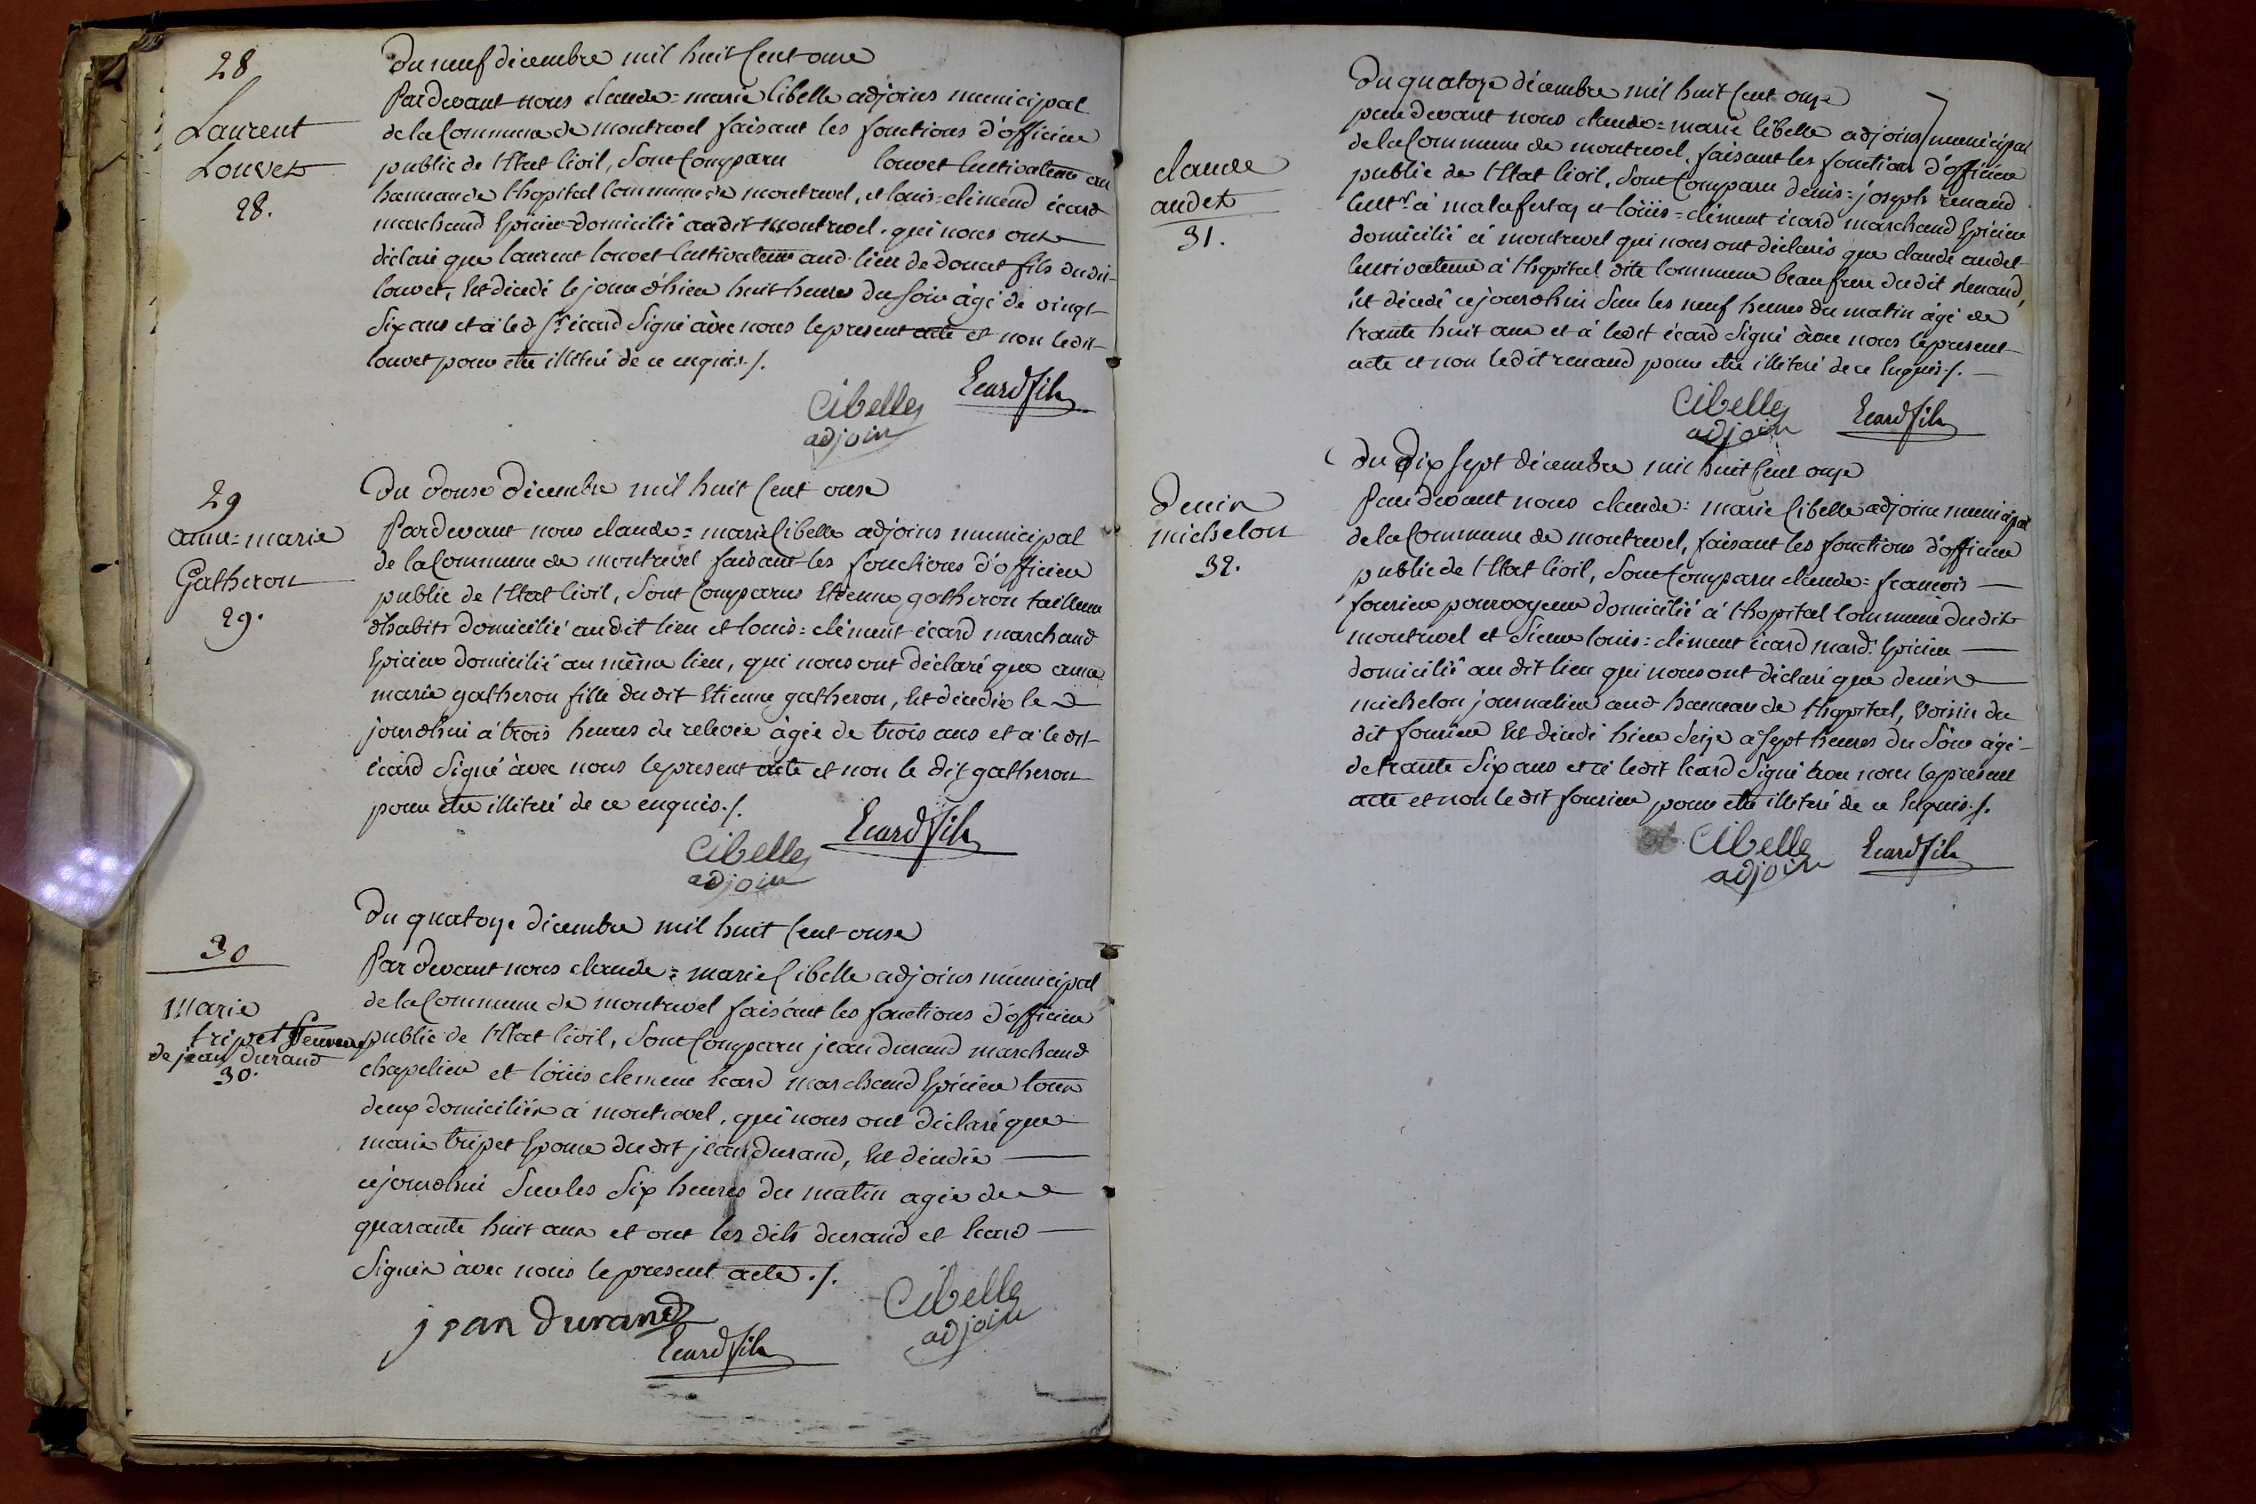 28
Laurent
Louvet
28.
Du neuf décembre mil huit Cent onse
Pardevant nous claude=marie Cibelle adjoins municipal
de la Commune de montrevel faisant les fonctions d'officier
public de l'Etat Civil, sont Comparu louvet Cultivateur au
hameau de l'hopital Commune de montrevel, et louis=clément écard
marchand Epicier domicilié audit montrevel. qui nous ont
déclaré que laurent louvet Cultivateur aud. lieu de fils dudit
louvet, Est décédé le jour d'hier huit heures du soir âgé de vingt
six ans et à led. Sr. écard signé àvec nous le present acte et non ledit
louvet pour etre illiteré de ce enquis./.
Cibelle
adjoin
Ecard fils
29
anne=marie
Gatheron
29.
Du douse Décembre mil huit Cent onse
Pardevant nous claude=marie Cibelle adjoins municipal
de la Commune de montrevel faisant les fonctions d'officier
public de l'Etat Civil, sont Comparus Etienne gatheron tailleur
d'habits domicilié audit lieu et louis=clément écard marchand
Epicier domicilié au même lieu, qui nous ont déclaré que anne
marie gatheron fille dudit Etienne gatheron, Est décédée le
jourdhui à trois heures de relevée âgée de trois ans et à ledit
écard signé àvec nous le present acte et non le dit gatheron
pour etre illiteré de ce enquis./.
Cibelle
adjoin
Ecard fils
30
Marie
tripet femme
de jean Durand
30.
Du quatorze décembre mil huit Cent onse
Par devant nous claude=marie Cibelle adjoins municipal
de la Commune de montrevel faisant les fonctions d'officier
public de l'Etat Civil, sont Comparu jean durand marchand
chapelier et louis clement Ecard marchand Epicier tous
deux domiciliés à montrevel, qui nous ont déclaré que
marie tripet Epouse dudit jean durand, Est décédée
cejourdhui sur les six heures du matin agée de
quarante huit ans et ont les dits durand et Ecard
signés àvec nous le present acte./.
jean durand
Ecard fils
Cibelle
adjoin
claude
audet
31.
Du quatorze décembre mil huit Cent onze
pardevant nous claude=marie Cibelle adjoins municipal
de la Commune de montrevel, faisant les fonctions d'officier
public de l'Etat Civil, sont Comparu denis=joseph renaud
Cultr. à malafertay et loüis=clément écard marchand Epicier
domicilié à montrevel qui nous ont déclarés que claude audet
Cultivateur à l'hopital dite Commune beau frere dudit renaud,
Est décédé cejourdhui sur les neuf heures du matin âgé de
trante huit ans et à ledit écard signé àvec nous le present
acte et non ledit renaud pour etre illiteré de ce Enquis./.
Cibelle
adjoin
Ecard fils
Denis
michelon
32.
du Dix sept décembre mil huit Cent onze
Pardevant nous claude=marie Cibelle adjoins municipal
de la Commune de montrevel, faisant les fonctions d'officier
public de l'Etat Civil, sont Comparu claude=francois
fourier pourvoyeur domicilié à l'hopital Commune dudit
montrevel et sieur louis=clément écard mard. Epicier
domicilié au dit lieu qui nous ont déclaré que denis
michelon journalier aud. hameau de l'hopital, Voisin du
dit fourier Est décédé hier seize à sept heures du soir âgé
de trante six ans et à ledit Ecard signé avec nous le present
acte et non le dit fourier pour etre illiteré de ce Enquis./.
Cibelle
adjoin
Ecard fils